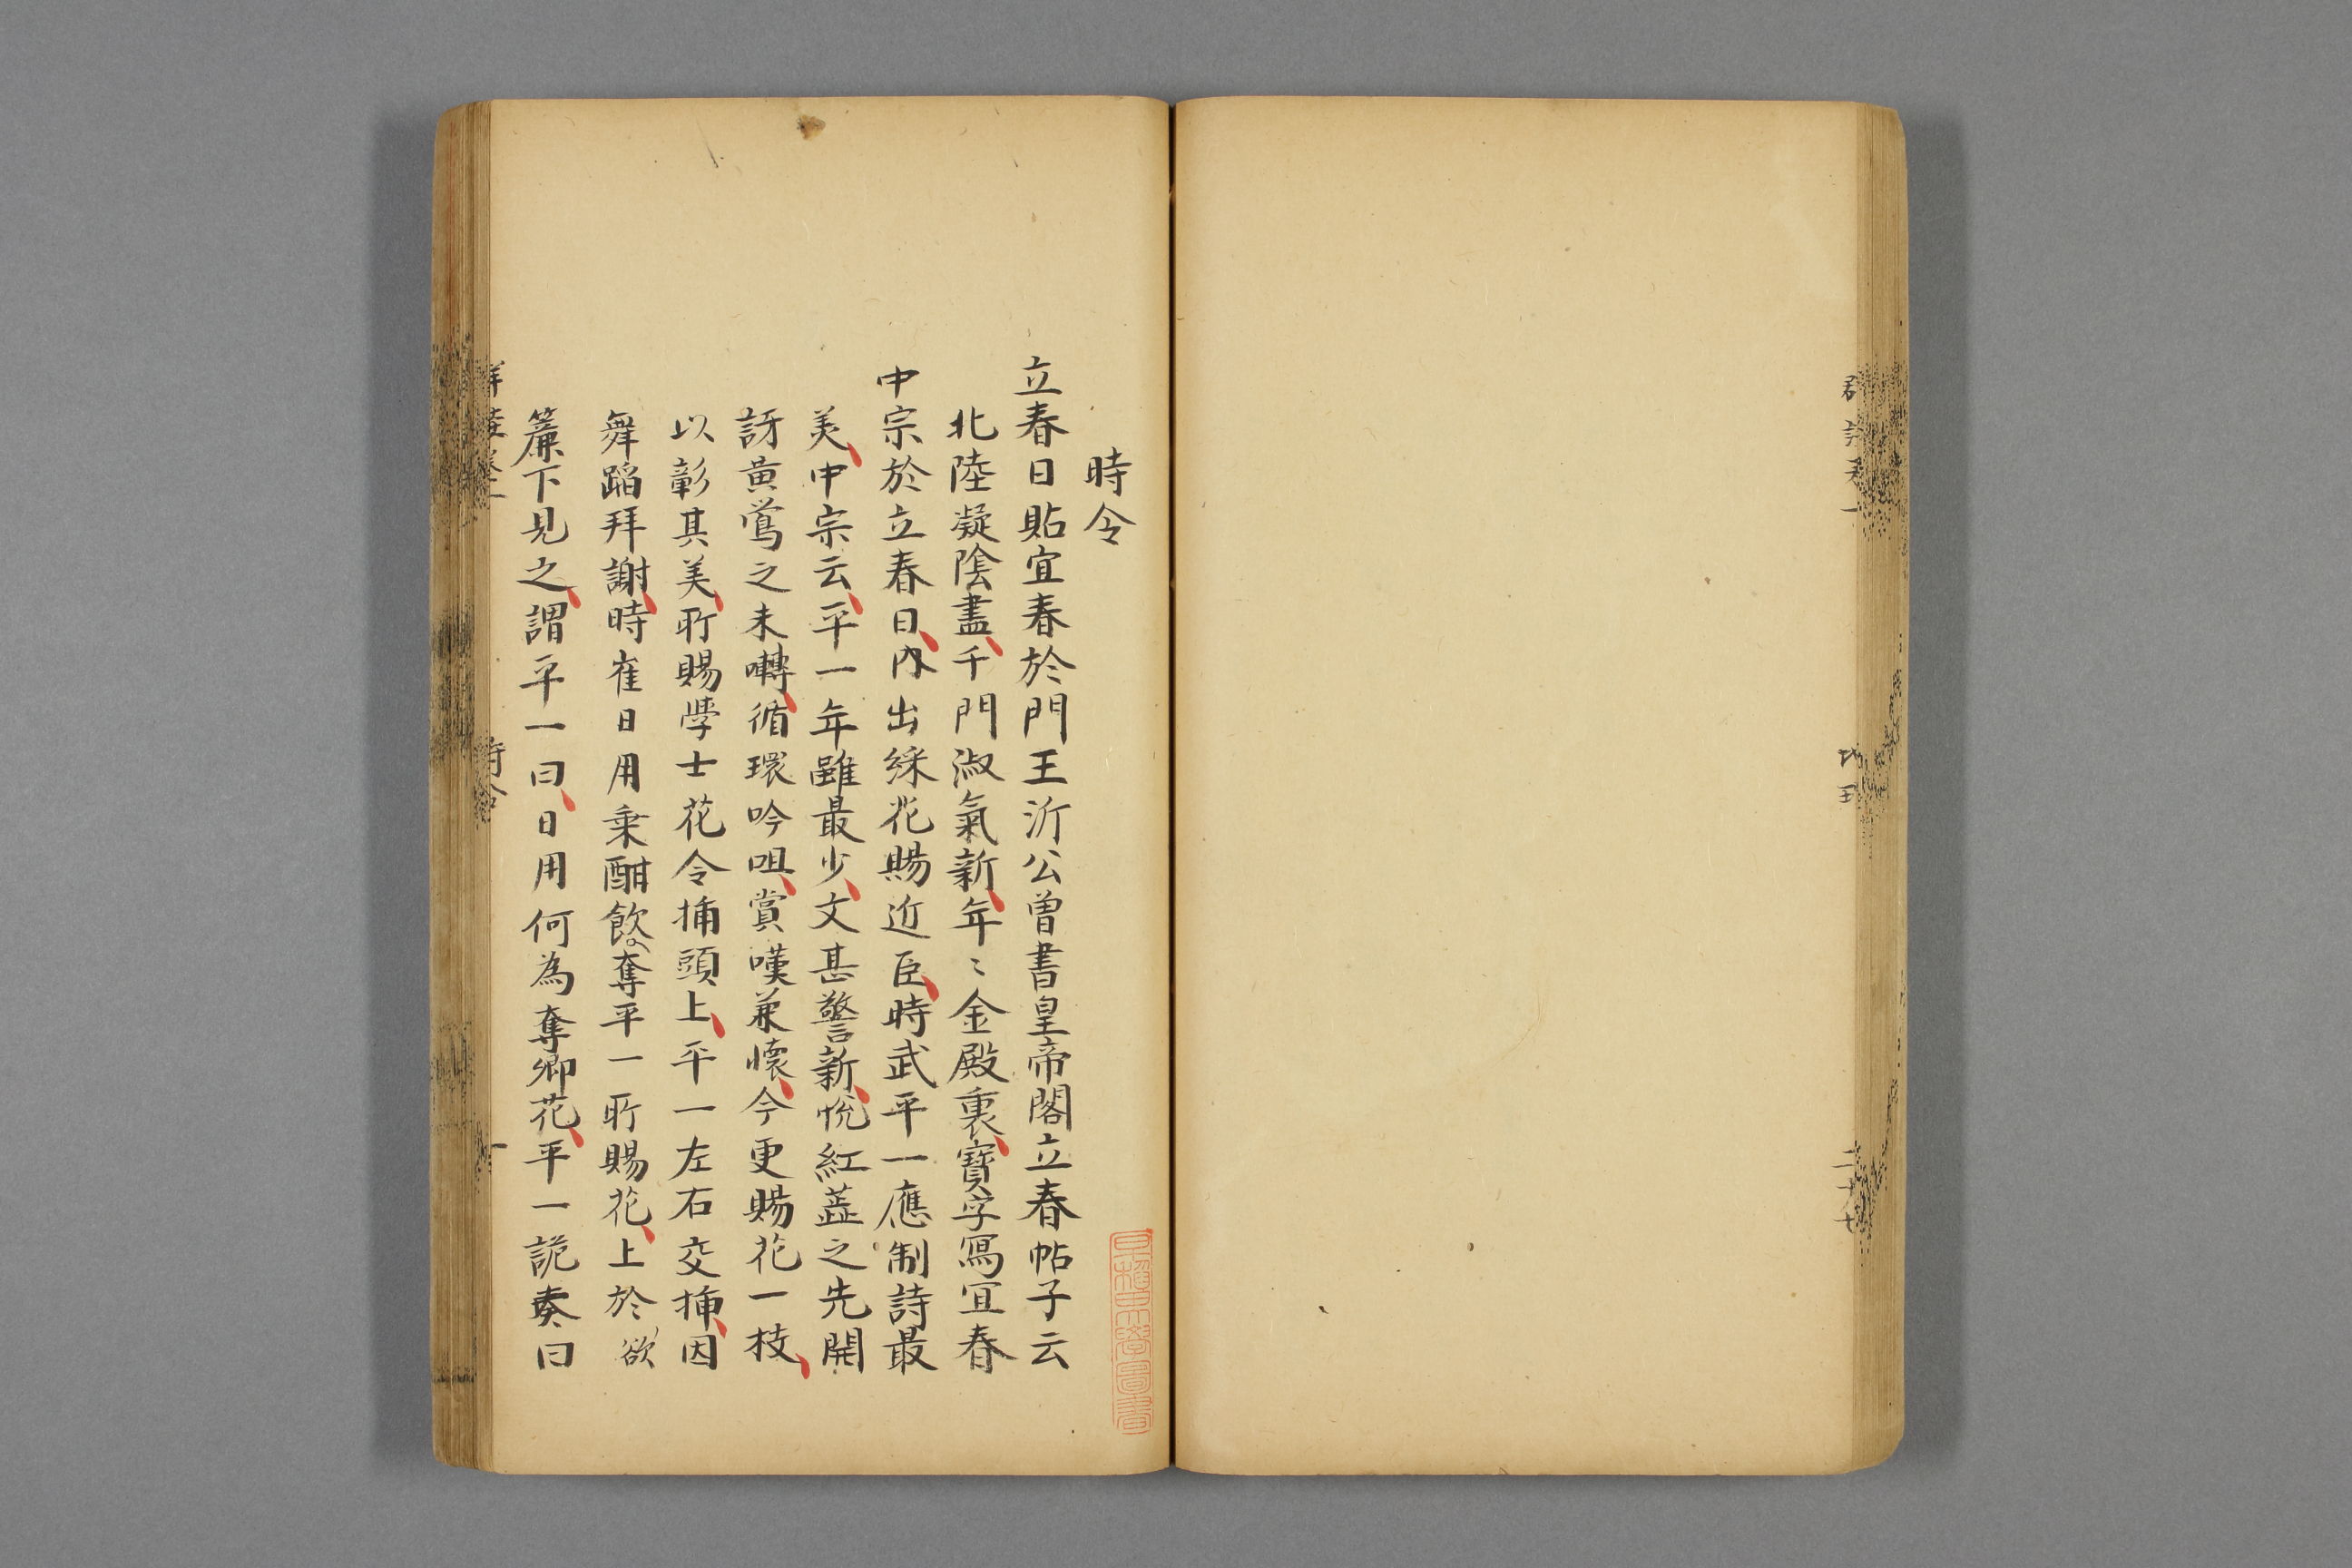 時令
立春日貼宜春於門王沂公曾書皇帝閣立春帖子云
北陸凝陰盡千門淑氣新年〻金殿裏寶字寫宜春
中宗於立春日內出綵花賜近臣時武平一應制詩最
美中宗云平一年雖最少文甚警新悅紅蘂之先開
訝黃鶯之未囀循環吟咀賞嘆兼懷今更賜花一枝
以彰其美所賜學士花令揷頭上平一左右交揷因
舞蹈拜謝時崔日用乗酣飲奪平一所賜花上於
欲
簾下見之謂平一曰日用何為奪卿花平一跪奏曰
時令
二十七